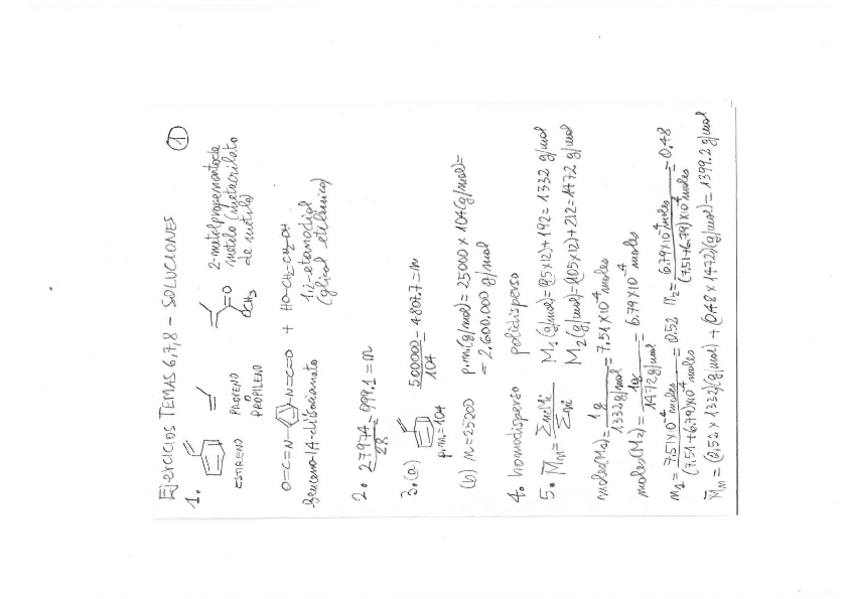 Ejercicios TEMAS 6,7,8 - SOLUCIONES
①
1.
ESTIRENO
PROPENO
O
PROPILENO
OCH3
O
2-metilpropenoato de
metilo (metacrilato
de metilo)
O=C=N- -N=C=O + HO-CH2-CH2-OH
benceno-1,4-diisocianato
1,2-etanodiol
(glicol etilénico)
2. 27974/28 = 999.1 = n
3. (a) 500000/104 = 4807.7 = n
p.m. = 104
(b) n = 25000 p.m.(g/mol) = 25000 x 104(g/mol) =
= 2.600.000 g/mol
4. homodisperso polidisperso
5. M̄n = Σ niMi / Σ ni M1 (g/mol) = (95x12)+192 = 1332 g/mol
M2 (g/mol) = (105x12)+212 = 1472 g/mol
moles(M1) = 1 g / 1332 g/mol = 7.51 x 10⁻⁴ moles
moles(M2) = 1g / 1472 g/mol = 6.79 x 10⁻⁴ moles
n1 = 7.51 x 10⁻⁴ moles / (7.51+6.79) x 10⁻⁴ moles = 0.52 n2 = 6.79 x 10⁻⁴ moles / (7.51+6.79) x 10⁻⁴ moles = 0.48
M̄n = (0.52 x 1332)(g/mol) + (0.48 x 1472)(g/mol) = 1399.2 g/mol